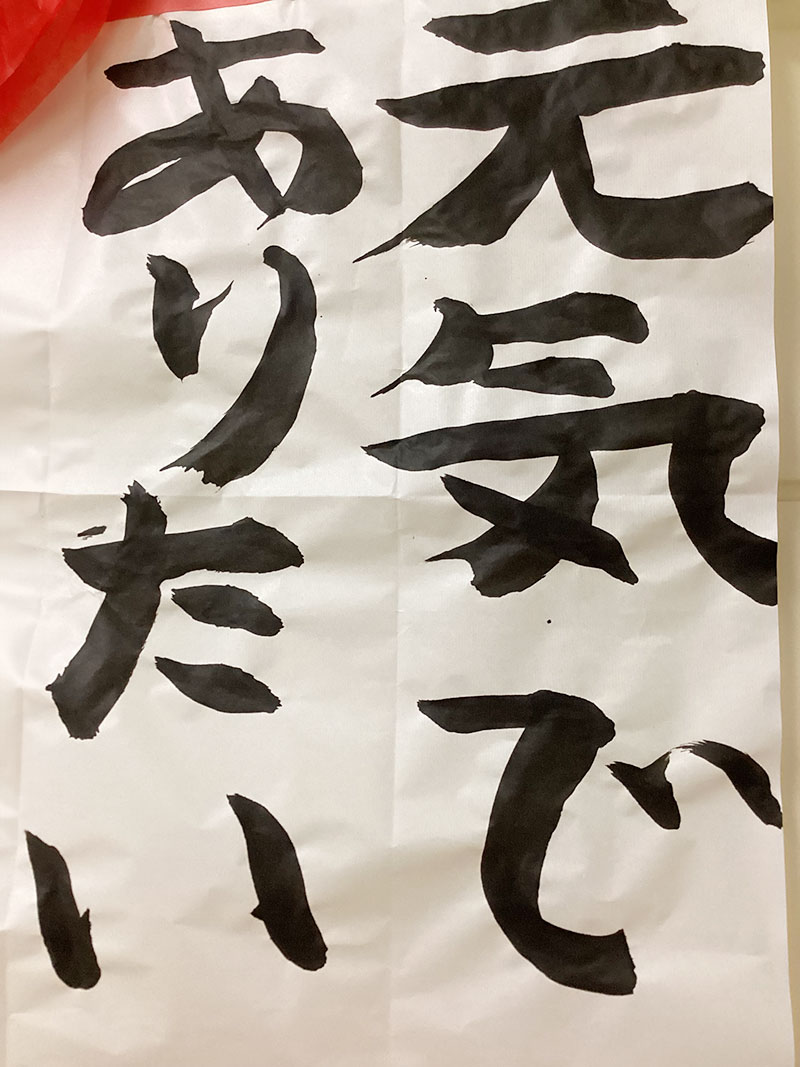 元気で
ありたい